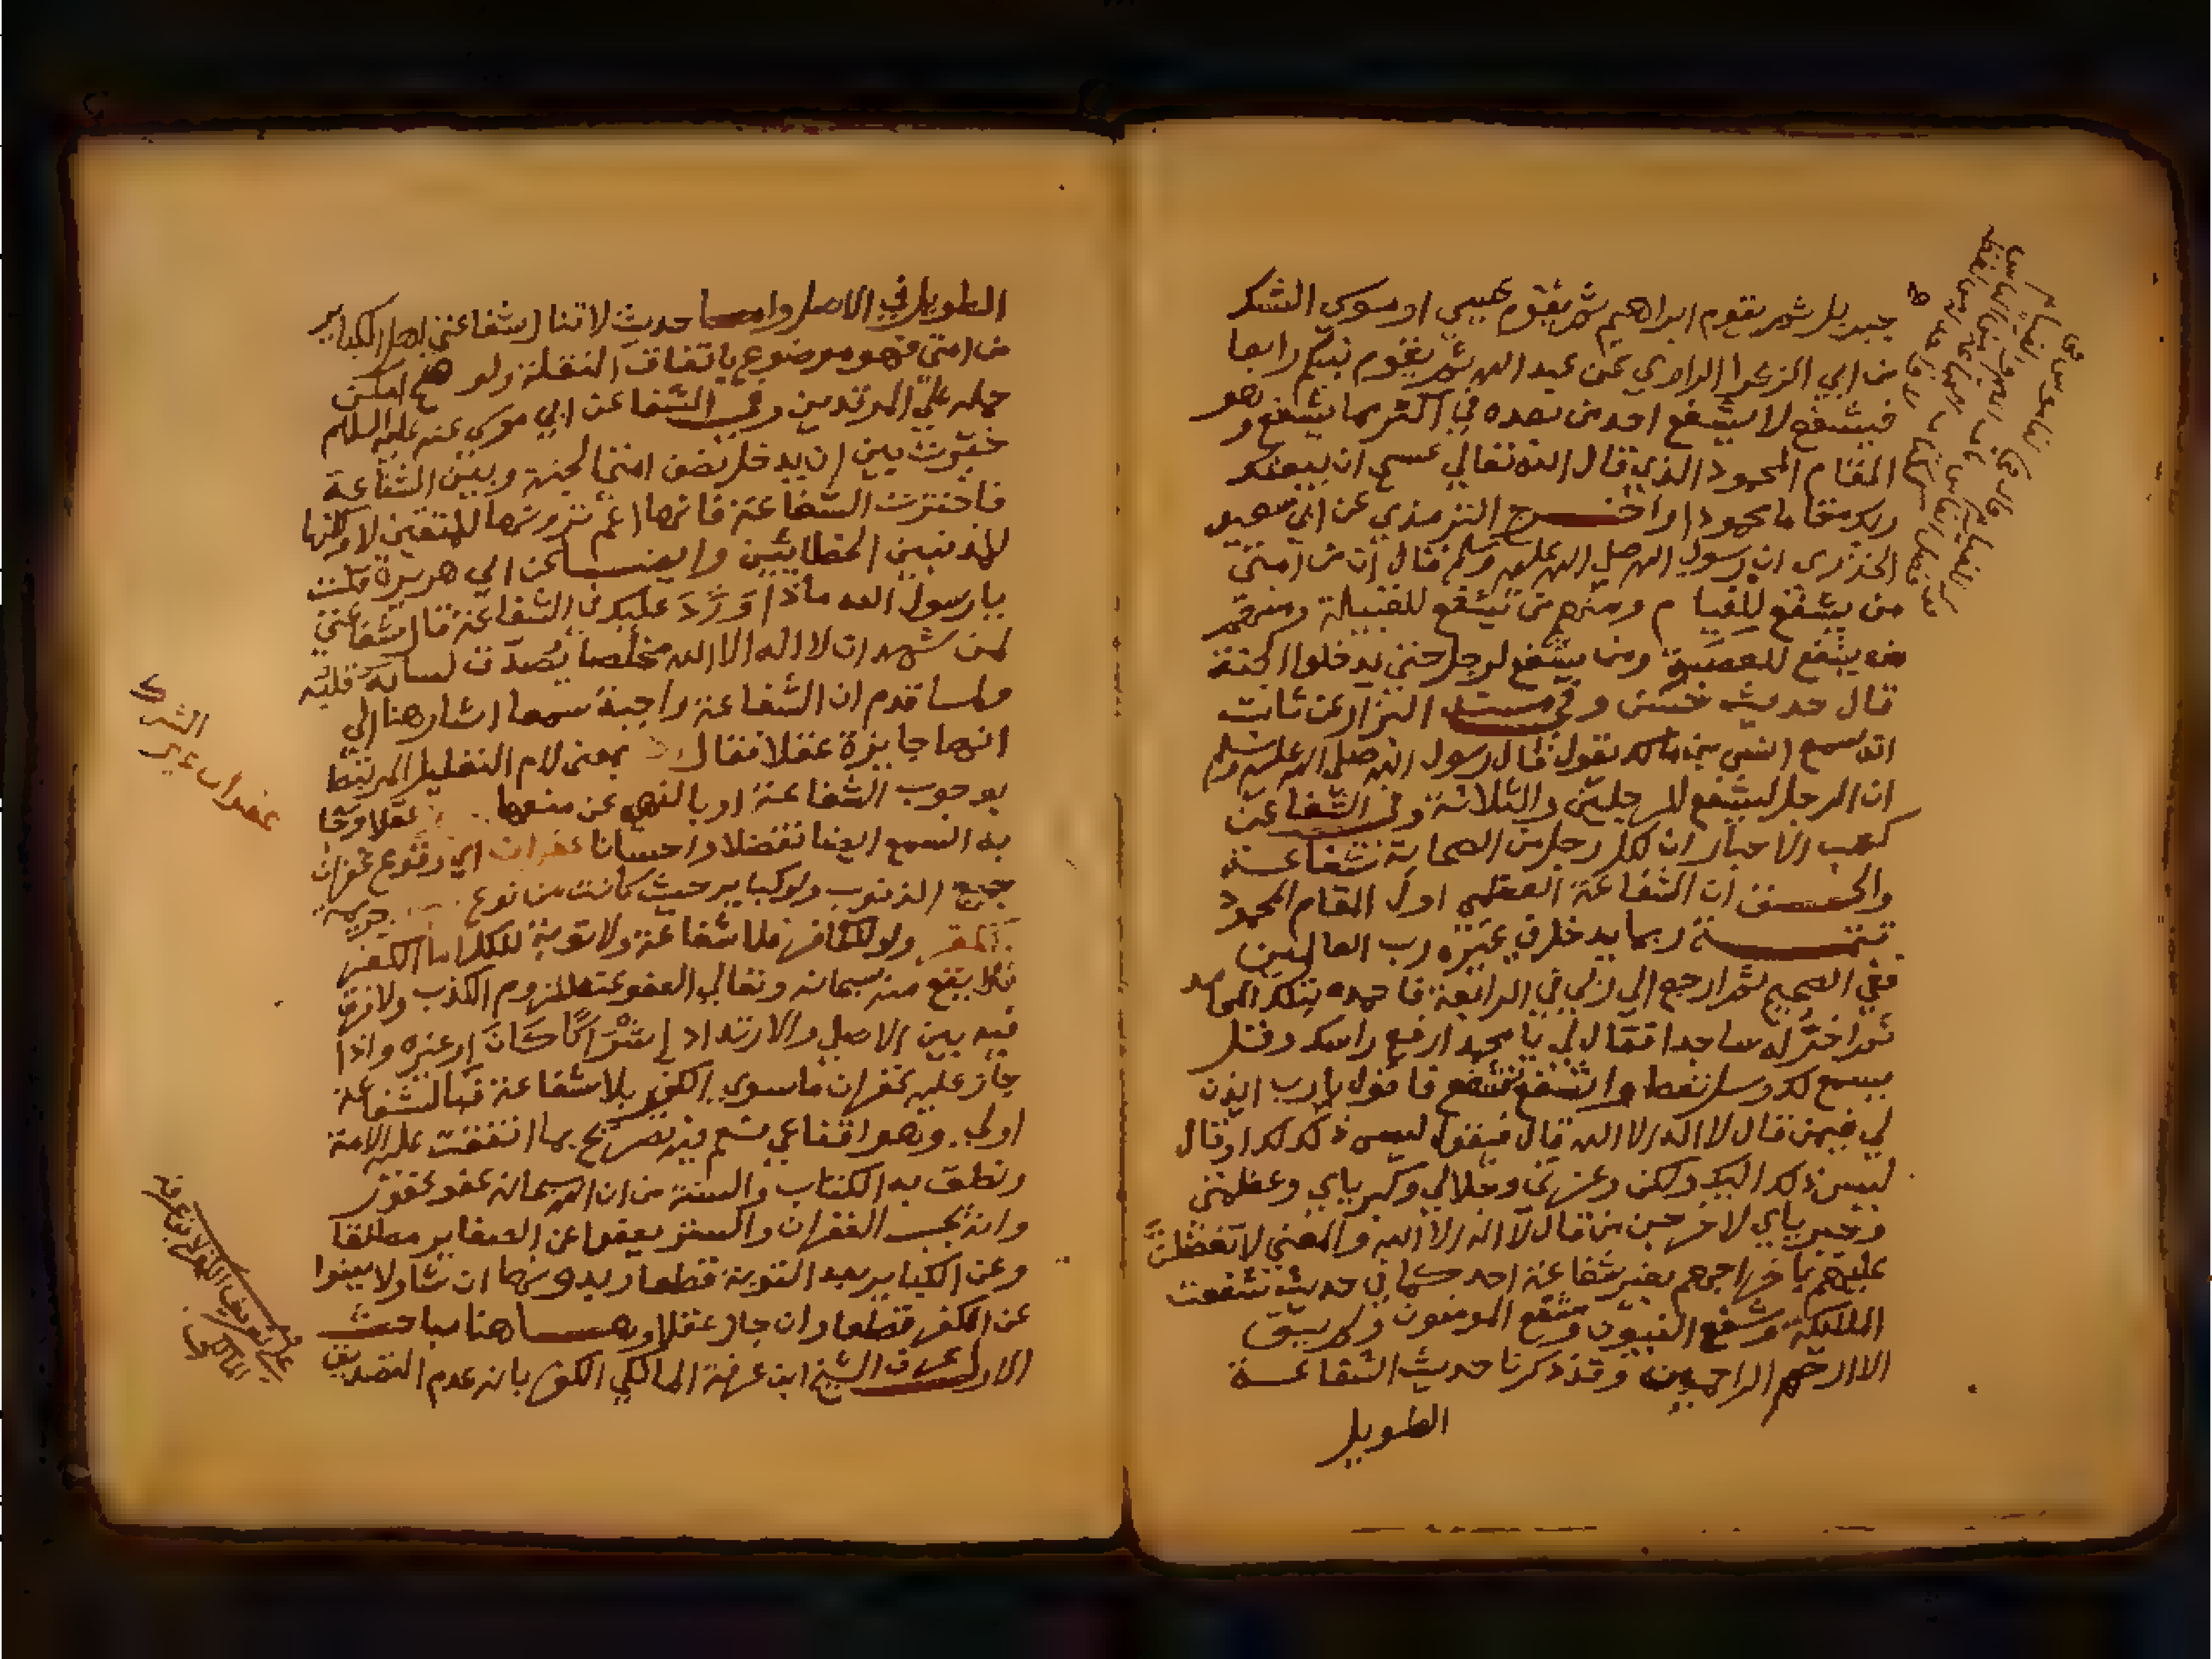 جبريل ثم يقوم ابراهيم ثم يقوم عيسى او موسى الشك
من ابي الزعرا الراوي عن عبد الله ثم يقوم نبيكم رابعا
فيشفع لا يشفع احد من بعده في اكثر مما يشفع وهو
المقام المحمود الذي قال الله تعالي عسى ان يبعثك
ربك مقاما محمودا واخرج الترمذي عن ابي سعيد
الخدري ان رسول الله صلى الله عليه وسلم قال ان من امتي
من يشفع للفيام ومنهم من يشفع للقبيلة ومنهم
من يشفع للعصبة ومن يشفع لرجل حتى يدخلوا الجنة
قال حديث حسن وفي مسند البزار عن ثابت
انه سمع انس بن مالك يقول قال رسول الله صلى الله عليه وسلم
ان الرجل ليشفع للرجلين والثلاثة وفي الشفا عن
كعب الاحبار ان لكل رجل من الصحابة شفاعة
والحسن ان الشفاعة العظمى اول المقام المحمود
تتمة ربما يدخل في غيره رب العالمين
ففي الصحيح ثم ارجع الي ربي في الرابعة فاحمده بتلك المحامد
ثم اخر له ساجدا فقال لي يا محمد ارفع راسك وقل
يسمع لك وسل تعط واشفع تشفع فاقول يا رب ايذن
لي فيمن قال لا اله الا الله قال فيقول ليس ذلك لك او قال
ليس ذلك اليك ولكن وعزتي وجلالي وكبرياي وعظمتي
وجبرياي لاخرجن من قال لا اله الا الله والمعني لاتفضلن
عليهم باخراجهم بغير شفاعة احد كما في حديث شفعت
الملايكة وشفع النبيون وشفع المومنون ولم يبق
الا ارحم الراحمين وقد ذكرنا حديث الشفاعة
الطويل
الطويل في الاصل واما حديث لا تنال شفاعتي اهل الكباير
من امتي فهو موضوع باتفاق النقلة ولو صح امكن
حمله علي المرتدين وفي الشفا عن ابي موسى عنه عليه السلام
خيرت بين ان يدخل نصف امتي الجنة وبين الشفاعة
فاخترت الشفاعة فانها اعم ترونها للمتقين لا ولكنها
للمذنبين الخطايين وايضا عن ابي هريرة قلت
يا رسول الله ماذا وَرَدَ عليك في الشفاعة قال شفاعتي
لمن شهد ان لا اله الا الله مخلصا يصدق لسانه قلبه
ولما قدم ان الشفاعة واجبة سمعا اشار هنا الي
انها جايزة عقلا فقال بمعنى لام التعليل المرتبط
بوجوب الشفاعة او بالنهي عن منعها عقلا وجا
به السمع ايضا تفضلا واحسانا غفران اي وقوع غفران
جميع الذنوب ولو كباير حيث كانت من نوع جريمة
الكفر ولو لكافر فلا شفاعة ولا توبة للكل اما الكفر
فلا يقع منه سبحانه وتعالي العفو عنه للزوم الكذب ولا فرق
فيه بين الاصلي والارتداد إشْرَاكًا كَانَ او غيره واذا
جاز عليه غفران ما سوى الكفر بلا شفاعة فبالشفاعة
اولي وهو اقناعي ثم فيه تصريح بما اتفقت عليه الامة
ونطق به الكتاب والسنة من ان الله سبحانه عفو غفور
وانه يحب الغفران والستر يعفو عن الصغاير مطلقا
وعن الكباير بعد التوبة قطعا وبدونها ان شا ولا يعفوا
عن الكفر قطعا وان جاز عقلا وهاهنا مباحث
الاول عرف الشيخ ابن عرفة المالكي الكفر بانه عدم التصديق
الشرك
غفران غير
تعريف الكفر لابن عرفة
المالكي